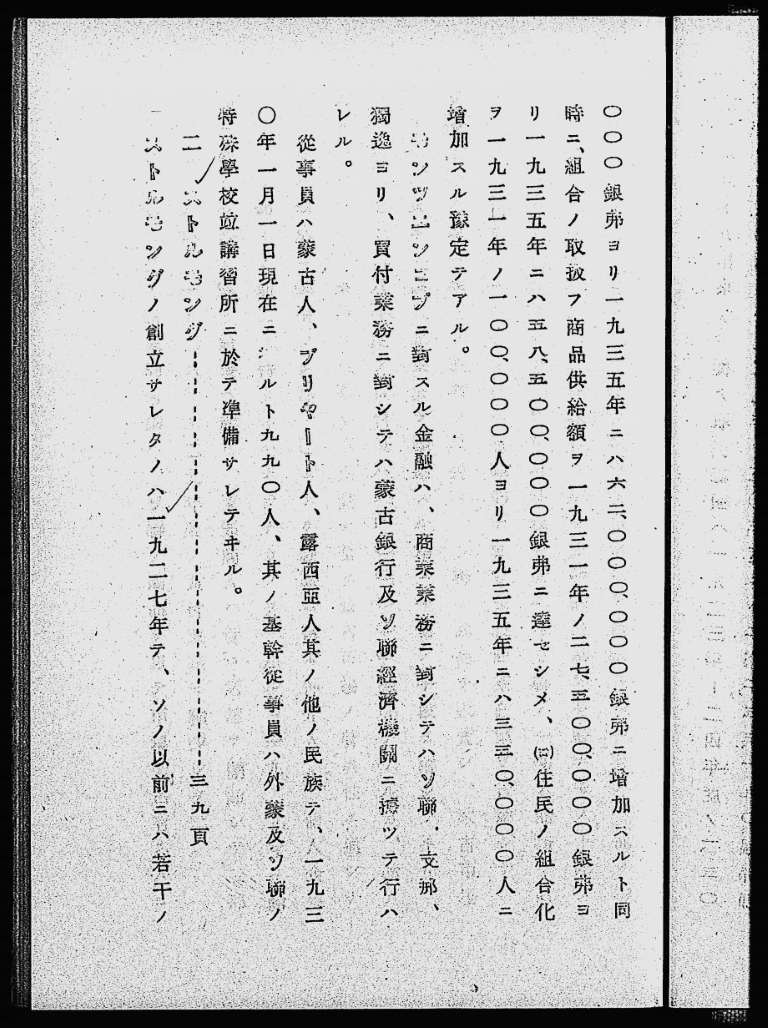 〇〇〇銀弗ヨリ一九三五年ニハ六二、〇〇〇、〇〇〇銀弗ニ増加スルト同
時ニ、組合ノ取扱フ商品供給額ヲ一九三一年ノ二七、五〇〇、〇〇〇銀弗ヨ
リ一九三五年ニハ五八、五〇〇、〇〇〇銀弗ニ達セシメ、㈡住民ノ組合化
ヲ一九三一年ノ一〇〇、〇〇〇人ヨリ一九三五年ニハ三三〇、〇〇〇人ニ
増加スル豫定テアル。
モンツエンコプニ對スル金融ハ、商業業務ニ對シテハソ聯、支那、
獨逸ヨリ、買付業務ニ對シテハ蒙古銀行及ソ聯經濟機關ニ據ツテ行ハ
レル。
從事員ハ蒙古人、ブリヤート人、露西亞人其ノ他ノ民族テ、一九三
〇年一月一日現在ニルト九九〇人、其ノ基幹從事員ハ外蒙及ソ聯ノ
特殊學校竝講習所ニ於テ準備サレテヰル。
二 ストルモング 三九頁
ストルモングノ創立サレタノハ一九二七年テ、ソノ以前ニハ若干ノ